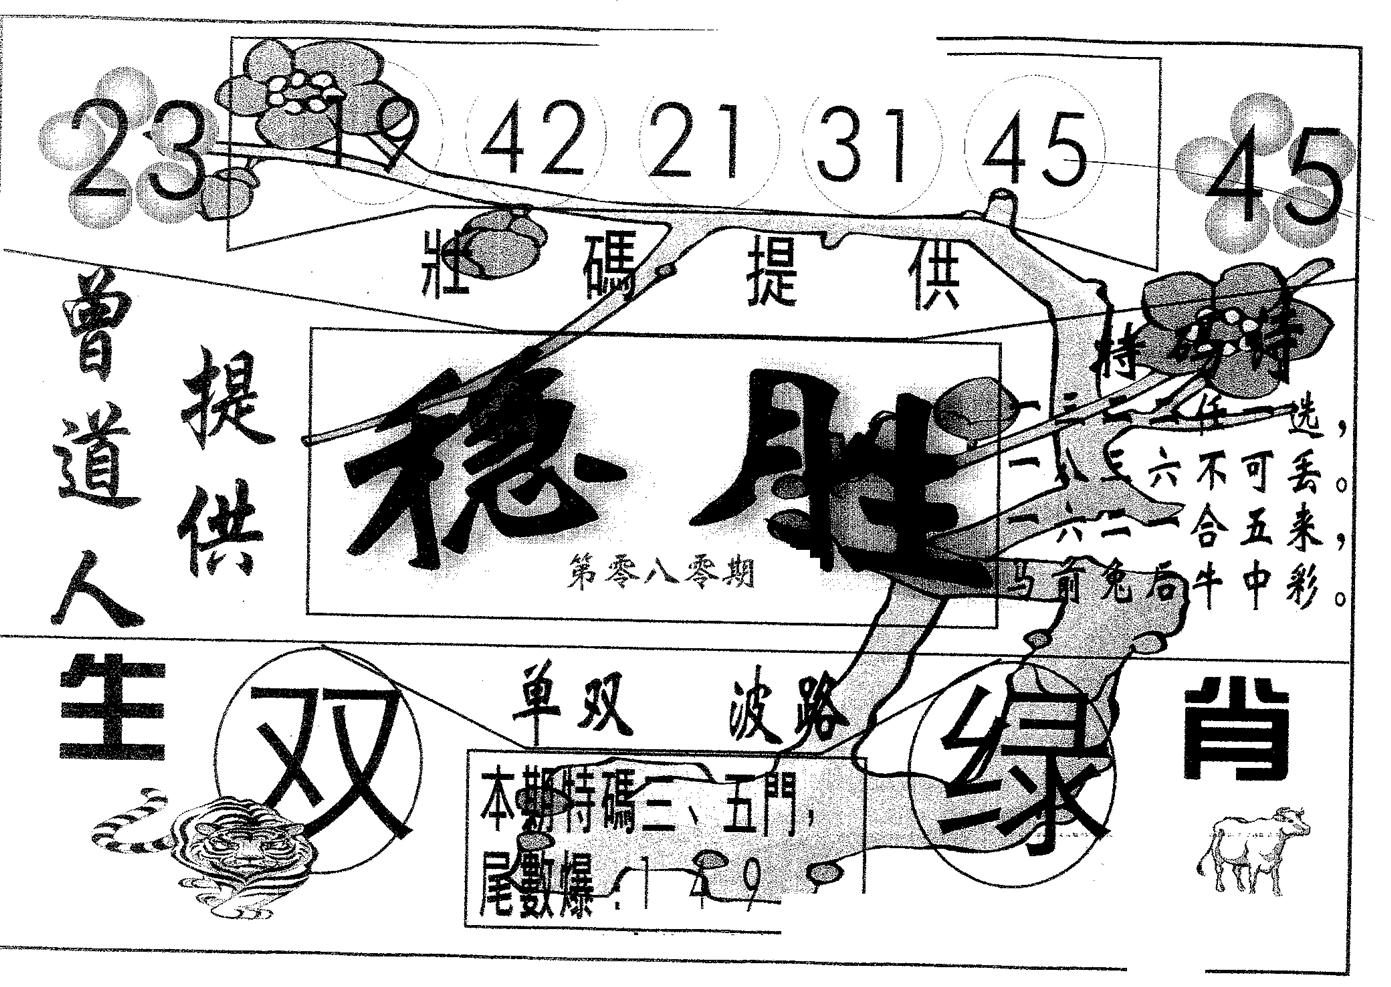 23 19 42 21 31 45 45
壯碼提供
曾道人
提供
稳胜
第零八零期
特码诗
一三二二任一选，
一八三六不可丢。
一六二一合五来，
马前兔后牛中彩。
生肖
双
单双 波路
绿
本期特碼三、五門，
尾數爆：1 4 9